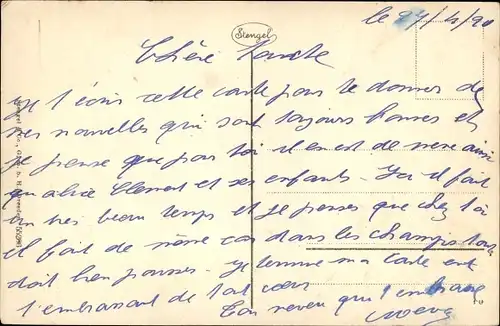 le 27/4/20
Stengel
Chère Tante
Je t'écris cette carte pour te donner de
mes nouvelles qui sont toujours bonnes et
je pense que pour toi il en est de meme ainsi
qu'alice Clement et ses enfants. Ici il fait
un tres beau temps et je penses que chez toi
il fait de même car dans les champs tout
doit bien pousser. Je termine ma carte en
t'embrassant de tout cœur
Ton neveu qui t'embrasse